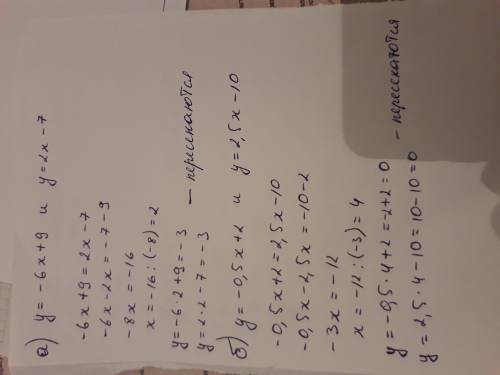 а) y = -6x+9 и y = 2x-7
-6x+9 = 2x-7
-6x-2x = -7-9
-8x = -16
x = -16 : (-8) = 2
y = -6·2+9 = -3
y = 2·2-7 = -3 — пересекаются
б) y = -0,5x+2 и y = 2,5x-10
-0,5x+2 = 2,5x-10
-0,5x-2,5x = -10-2
-3x = -12
x = -12 : (-3) = 4
y = -0,5·4+2 = -2+2 = 0
y = 2,5·4-10 = 10-10 = 0 — пересекаются